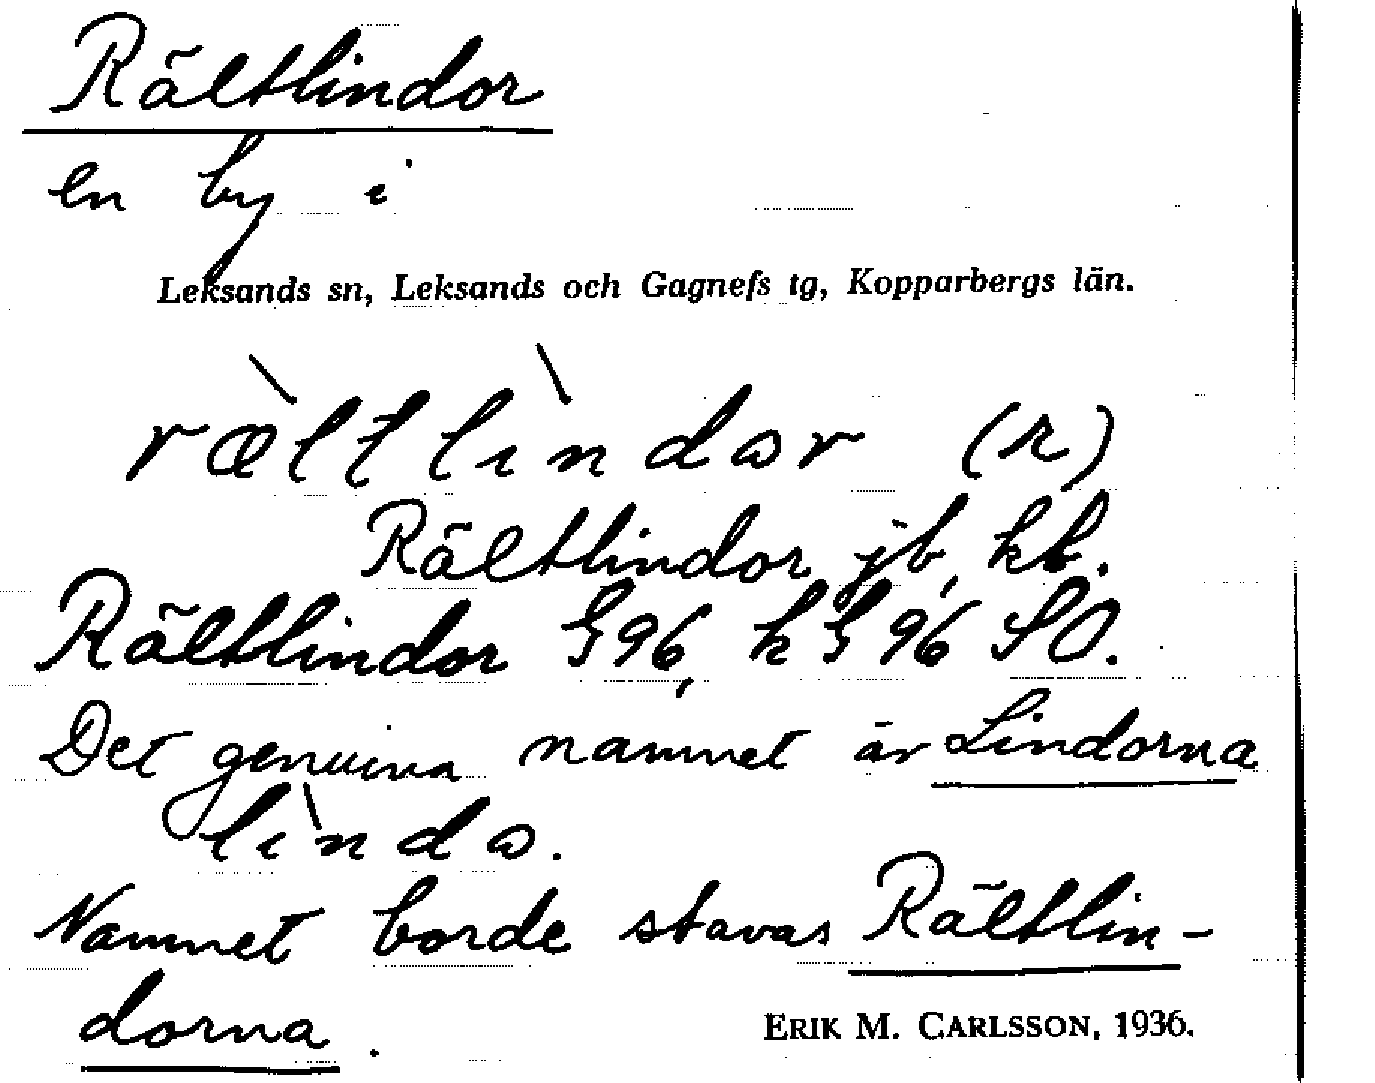 Rältlindor
en by i
Leksands sn, Leksands och Gagnefs tg, Kopparbergs län.
ræ̀ltlìndɷr (r)
Rältlindor jb, kb.
Rältlindor G96, kG96 SO.
Det genuina namnet är Lindorna
lìndɷ.
Namnet borde stavas Rältlin-
dorna.
ERIK M. CARLSSON, 1936.